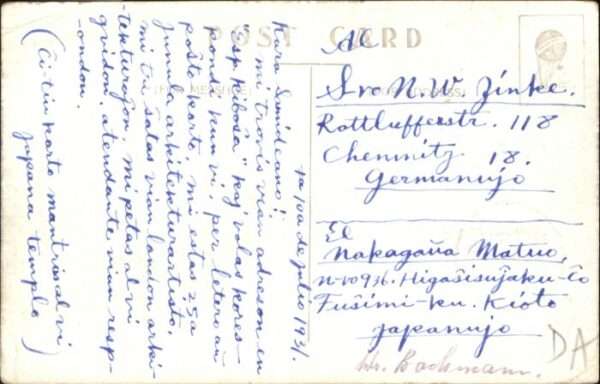 POST CARD
Al
Sro N. W. Zinke.
Rottlufferstr. 118
Chemnitz 18.
Germanujo
El
Nakagaŭa Matuo,
N-1093
Fuŝimi-ku. Kioto
Japanujo
DA
1a de julio 1931.
Kara Samideano!
mi trovis vian adreson en
"Esp. kaj volas kores-
pondi kun vi per letero aŭ
poŝta karto, mi estas 25a
junula arkitekturartisto,
mi tre ŝatas vian landon arki-
tekturojon mi petas al vi
gvidon, atendante vian resp-
-ondon.
(Ĉi-tiu karto montras al vi
japana templo)